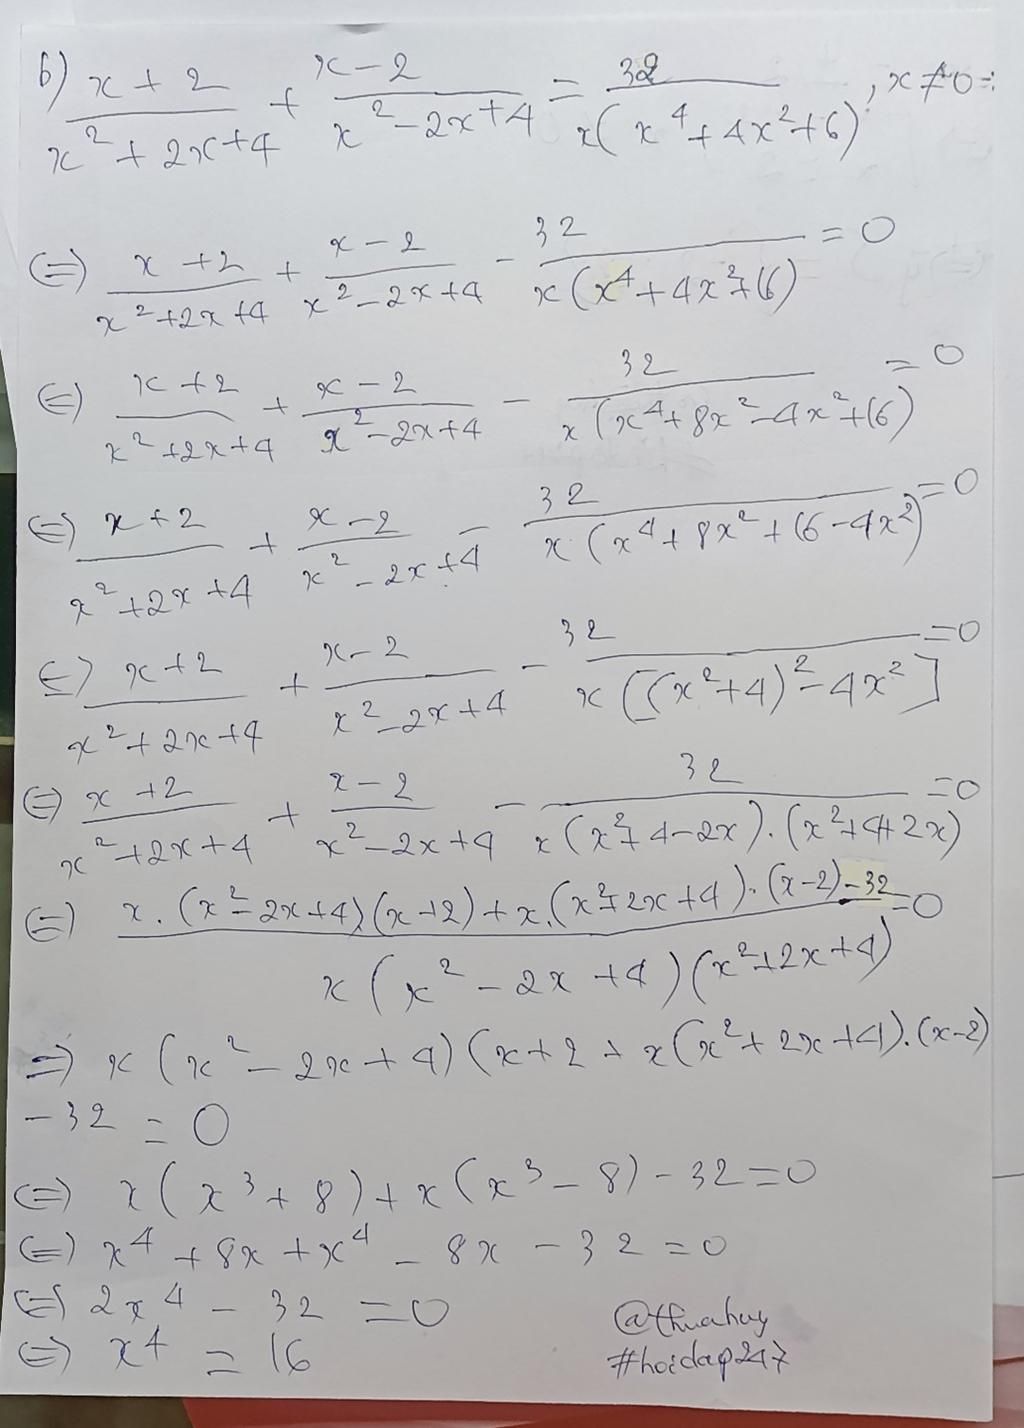 b) (x+2)/(x²+2x+4) + (x-2)/(x²-2x+4) = 32/(x(x⁴+4x²+16)), x≠0
(=) (x+2)/(x²+2x+4) + (x-2)/(x²-2x+4) - 32/(x(x⁴+4x²+16)) = 0
(=) (x+2)/(x²+2x+4) + (x-2)/(x²-2x+4) - 32/(x(x⁴+8x²-4x²+16)) = 0
(=) (x+2)/(x²+2x+4) + (x-2)/(x²-2x+4) - 32/(x(x⁴+8x²+16-4x²)) = 0
(=) (x+2)/(x²+2x+4) + (x-2)/(x²-2x+4) - 32/(x[(x²+4)²-4x²]) = 0
(=) (x+2)/(x²+2x+4) + (x-2)/(x²-2x+4) - 32/(x(x²+4-2x).(x²+4+2x)) = 0
(=) (x.(x²-2x+4)(x+2)+x.(x²+2x+4).(x-2)-32)/(x(x²-2x+4)(x²+2x+4)) = 0
=) x(x²-2x+4)(x+2+x(x²+2x+4).(x-2)
-32 = 0
(=) x(x³+8)+x(x³-8)-32=0
(=) x⁴+8x+x⁴-8x-32=0
(=) 2x⁴-32=0
(=) x⁴=16
@thuahuy
#hoidap247